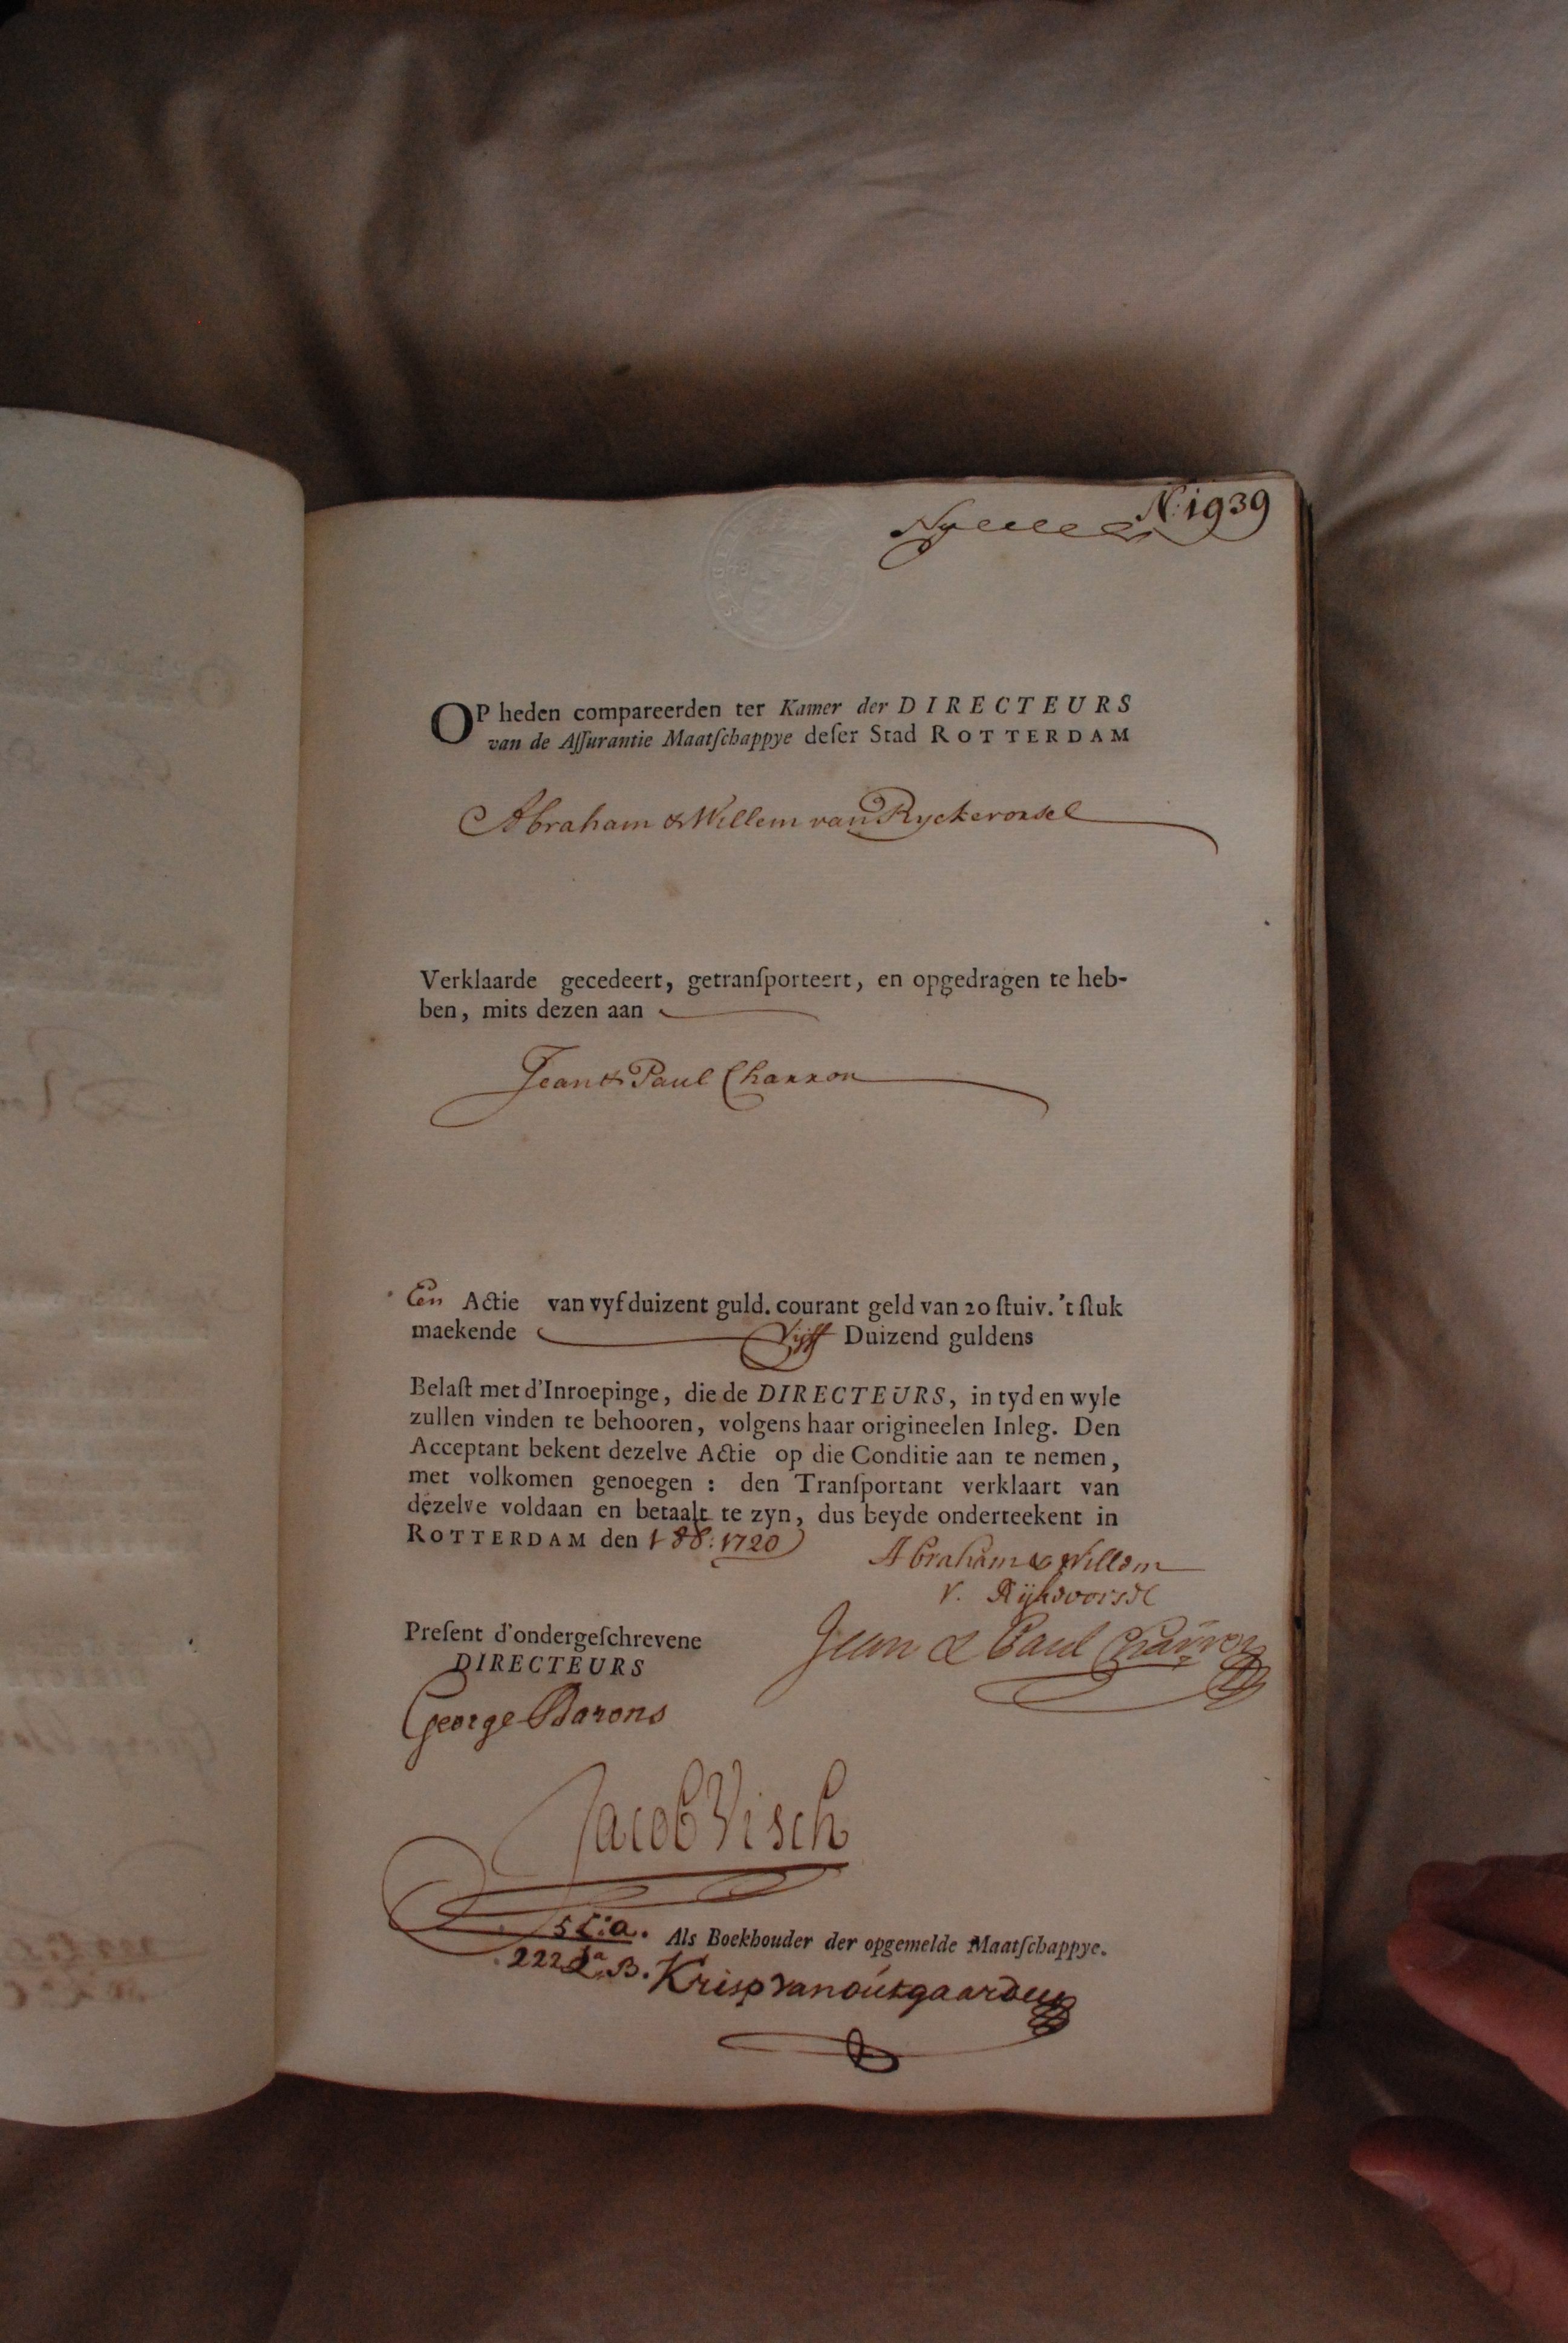 N: 1939
OP heden compareerden ter Kamer der DIRECTEURS
van de Aſſurantie Maatſchappye deſer Stad ROTTERDAM
Abraham & Willem van Ryckevorsel
Verklaarde gecedeert, getranſporteert, en opgedragen te heb-
ben, mits dezen aan
Jean & Paul Charron
Een Actie van vyfduizent guld. courant geld van 20 ſtuiv. 't ſtuk
maekende Vijff Duizend guldens
Belaſt met d'Inroepinge, die de DIRECTEURS, in tyd en wyle
zullen vinden te behooren, volgens haar origineelen Inleg. Den
Acceptant bekent dezelve Actie op die Conditie aan te nemen,
met volkomen genoegen : den Tranſportant verklaart van
dezelve voldaan en betaalt te zyn, dus beyde onderteekent in
ROTTERDAM den 1 8b: 1720
Abraham & Willem
v. Rijkevorsel
Preſent d'ondergeſchrevene
DIRECTEURS
Jean & Paul Charron
George Barons
Jacob Visch
5 L:a. Als Boekhouder der opgemelde Maatſchappye.
222 La B. Krisp van outgaarden